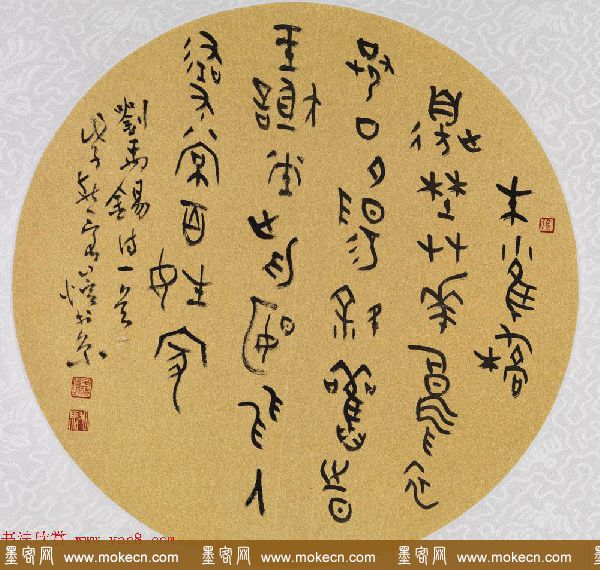 朱雀橋
邊野艸華烏衣
巷口夕陽斜舊時
王謝堂前燕飛入
尋常百姓家
劉禹錫诗一首
戊子秋
书法欣赏 www.yac8.com
墨客网 www.mokecn.com 墨客网 www.mokecn.com 墨客网 www.mokecn.com